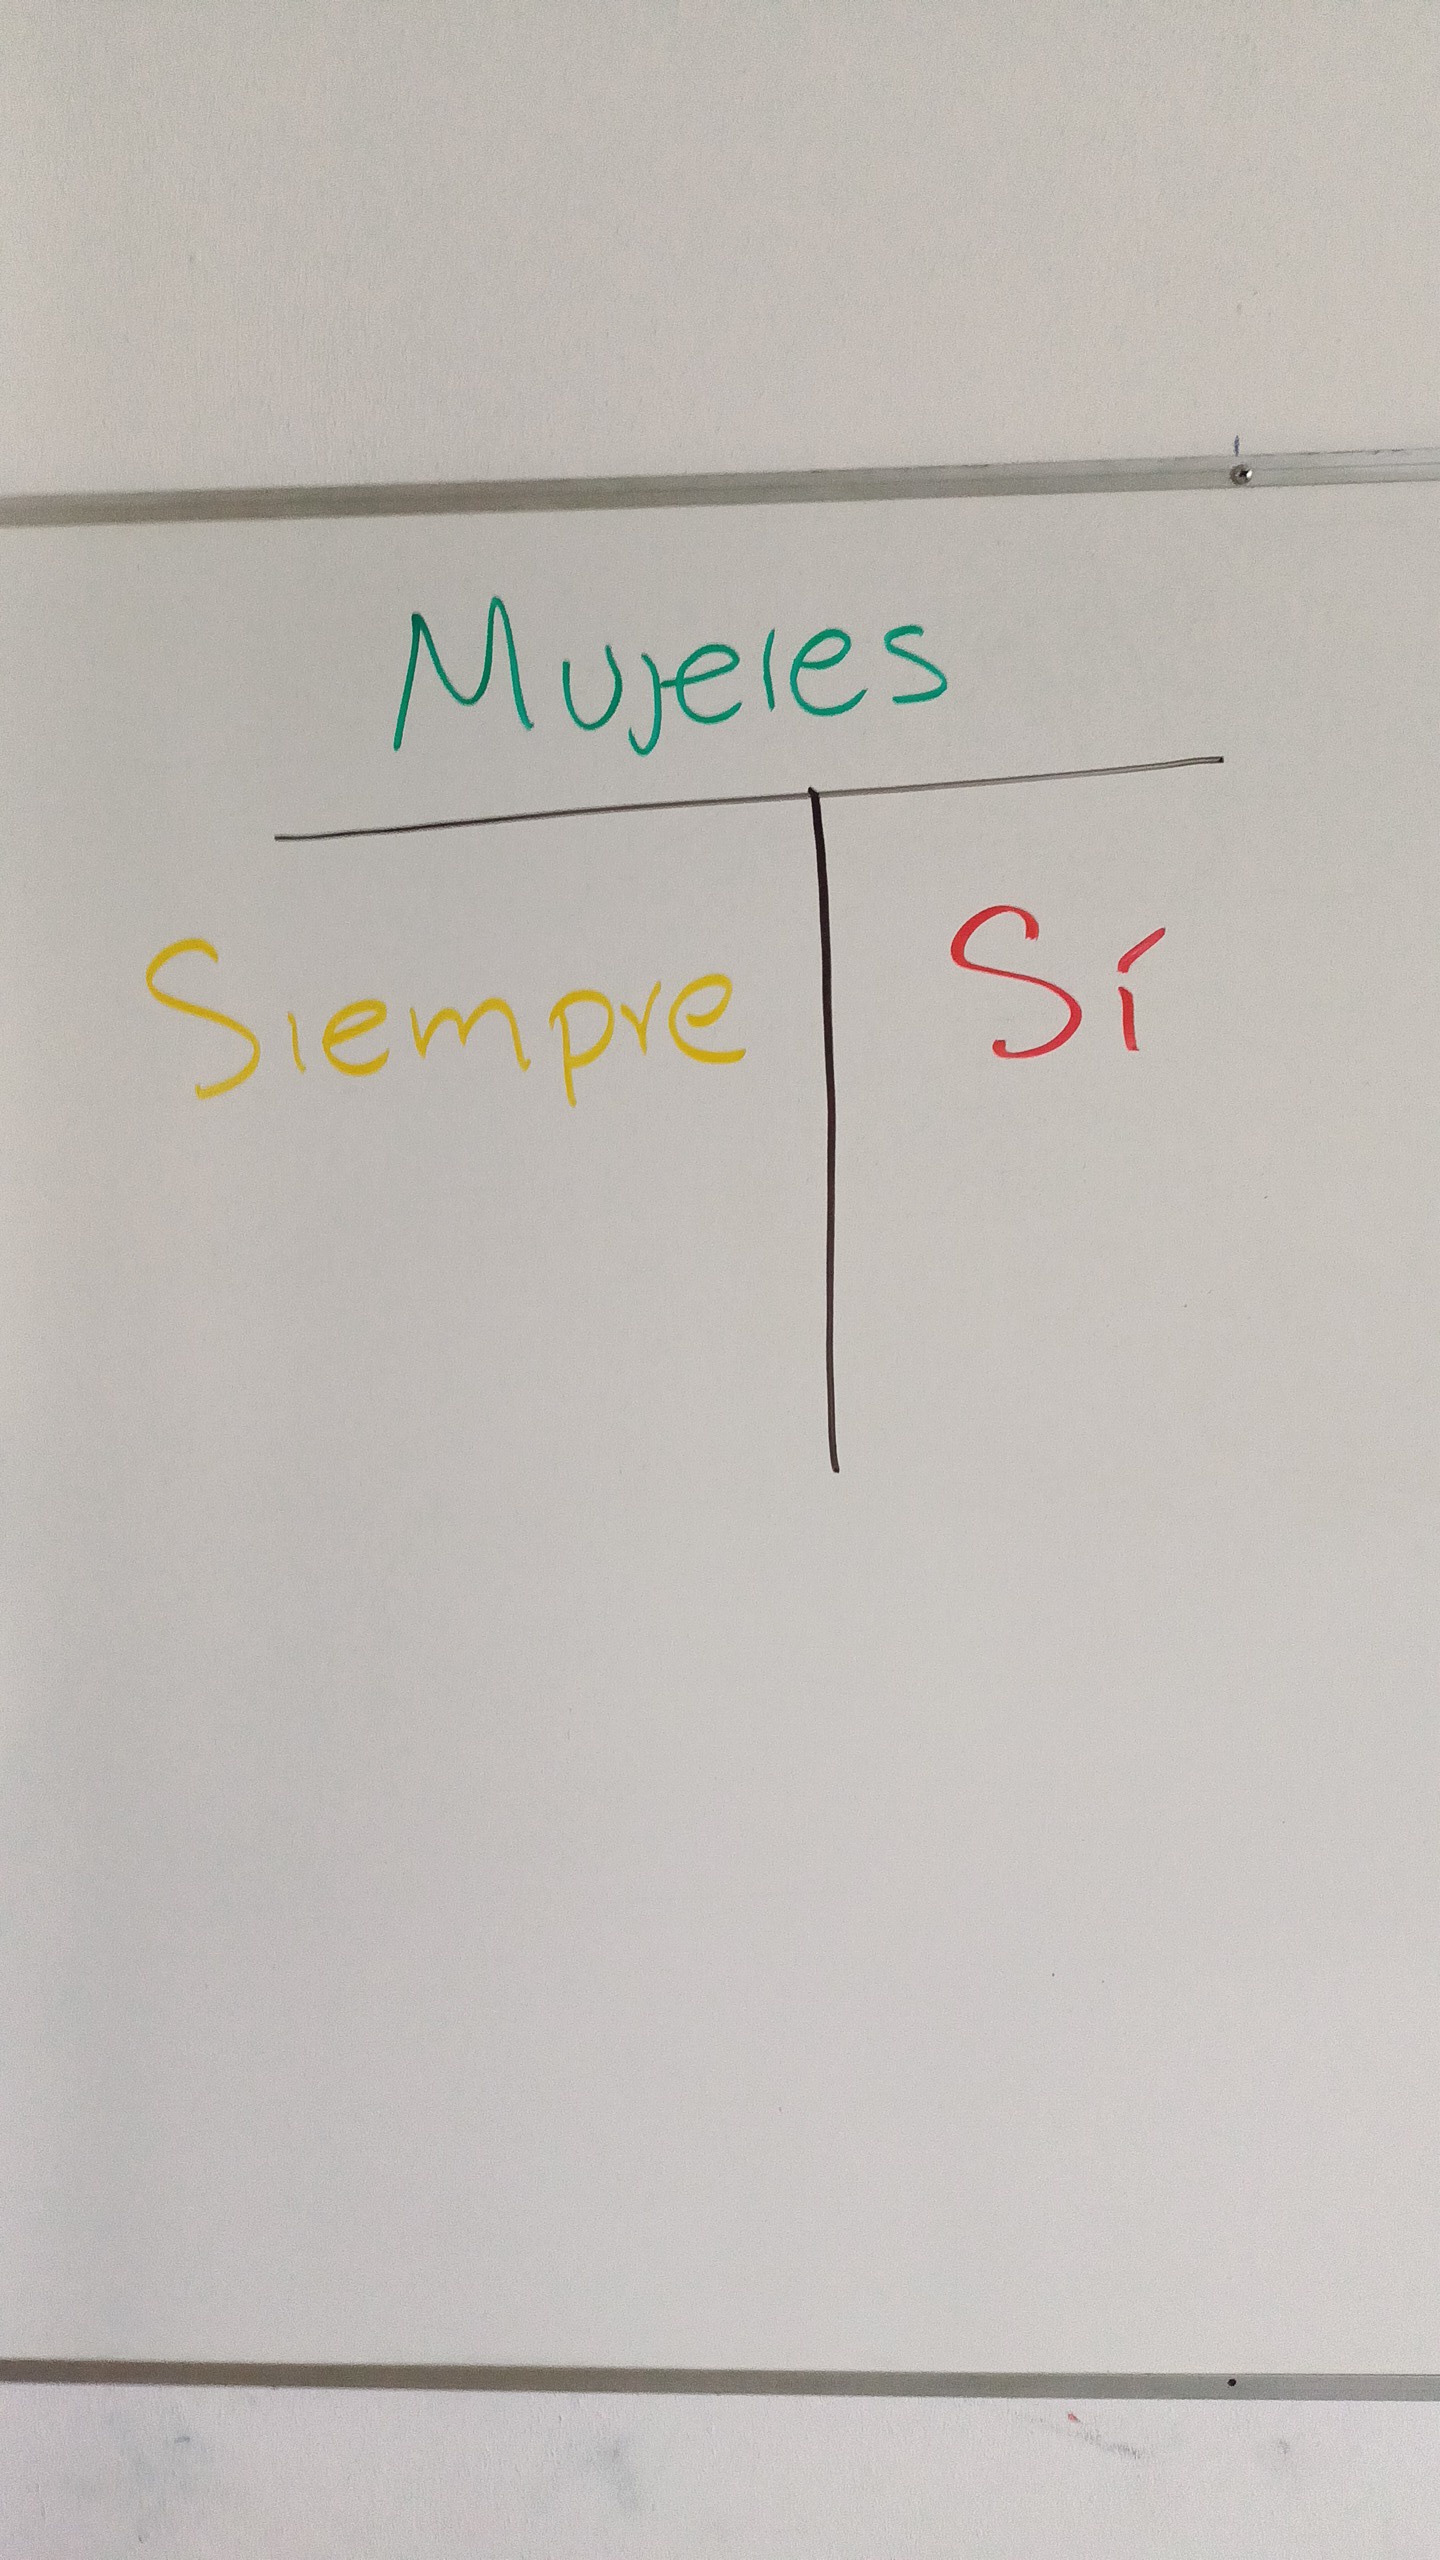 Mujeres
Siempre
Sí